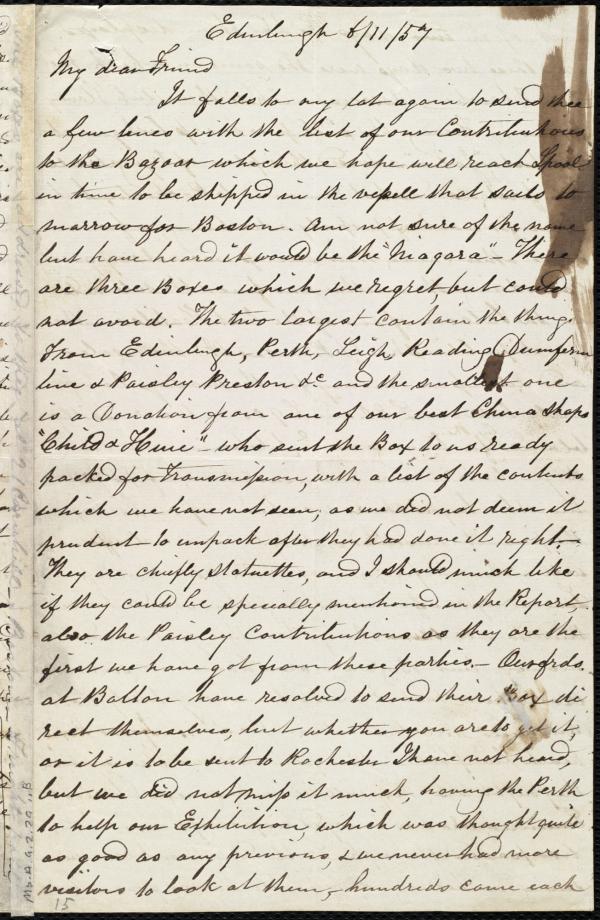 Edinburgh 6/11/57
My dear Friend
It falls to my lot again to send thee
a few lines with the list of our Contributions
to the Bazaar which we hope will reach Lpool
in time to be shipped in the vessell that sails to
morrow for Boston. Am not sure of the name
but have heard it would be the "Niagara" - There
are three Boxes which we regret, but could
not avoid. The two largest contain the things
From Edinburgh, Perth, Leigh, Reading, Dumferm
line & Paisley Preston &c and the smallest one
is a Donation from one of our best China Shops
"Child & Hine" - who sent the Box to us ready
packed for transmission, with a list of the contents
which we have not seen, as we did not deem it
prudent to unpack after they had done it right. -
They are chiefly Statuettes, and I should much like
if they could be specially mentioned in the Report,
also the Paisley Contributions as they are the
first we have got from these parties. - Our frds.
at Bolton have resolved to send their Box di
rect themselves, but whether you are to get it,
or it is to be sent to Rochester I have not heard,
but we did not miss it much, having the Perth
to help our Exhibition, which was thought quite
as good as any previous, & we never had more
visitors to look at them, - hundreds came each
15